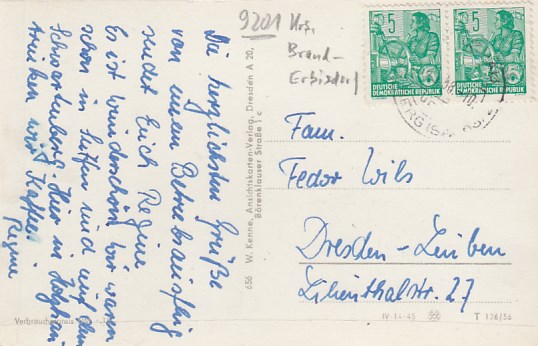 Die herzlichsten Grüße
von einem Betriebsausflug
sendet Euch Regine
Es ist wunderschön wir waren
schon in Seiffen sind auf dem
Schwartenberg. Hier in
trinken wir Kaffee
Regine
9201 Krs.
Brand-
Erbisdorf
5
DEUTSCHE
DEMOKRATISCHE REPUBLIK
5
DEUTSCHE
DEMOKRATISCHE REPUBLIK
Fam.
Fedor Wils
Dresden-Leuben
Lilienthalstr. 27
656 W. Kenne, Ansichtskarten-Verlag, Dresden A 20,
Börenklauser Straße 1 c
Verbraucherpreis
IV-14-45
T 126/56